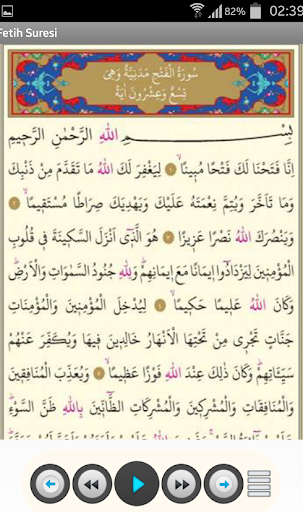 82% 02:39
Fetih Suresi
سُورَةُ الْفَتْحِ مَدَنِيَّةٌ وَهِيَ
تِسْعٌ وَعِشْرُونَ اٰيَةً
بِسْمِ اللهِ الرَّحْمٰنِ الرَّحِيمِ
اِنَّا فَتَحْنَا لَكَ فَتْحًا مُبِينًاۙ ﴿١﴾ لِيَغْفِرَ لَكَ اللهُ مَا تَقَدَّمَ مِنْ ذَنْبِكَ
وَمَا تَاَخَّرَ وَيُتِمَّ نِعْمَتَهُ عَلَيْكَ وَيَهْدِيَكَ صِرَاطًا مُسْتَقِيمًاۙ ﴿٢﴾
وَيَنْصُرَكَ اللهُ نَصْرًا عَزِيزًا ﴿٣﴾ هُوَ الَّذِٓي اَنْزَلَ السَّكِينَةَ فِي قُلُوبِ
الْمُؤْمِنِينَ لِيَزْدَادُٓوا اِيمَانًا مَعَ اِيمَانِهِمْۜ وَلِلهِ جُنُودُ السَّمٰوَاتِ وَالْاَرْضِۜ
وَكَانَ اللهُ عَلِيمًا حَكِيمًاۙ ﴿٤﴾ لِيُدْخِلَ الْمُؤْمِنِينَ وَالْمُؤْمِنَاتِ
جَنَّاتٍ تَجْرِي مِنْ تَحْتِهَا الْاَنْهَارُ خَالِدِينَ فِيهَا وَيُكَفِّرَ عَنْهُمْ
سَيِّـَٔاتِهِمْۜ وَكَانَ ذٰلِكَ عِنْدَ اللهِ فَوْزًا عَظِيمًاۙ ﴿٥﴾ وَيُعَذِّبَ الْمُنَافِقِينَ
وَالْمُنَافِقَاتِ وَالْمُشْرِكِينَ وَالْمُشْرِكَاتِ الظَّٓانِّينَ بِاللهِ ظَنَّ السَّوْءِۜ